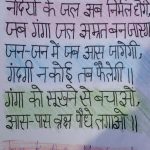 नदियों के जल जब निर्मल होंगे,
जब गंगा जल अमृत बन जाएगा
जन-जन में जब आस जगेगी,
गंदगी न कोई तब फैलेगी ॥
गंगा को सूखने से बचाओ,
आस-पास वृक्ष पौधे लगाओ ॥